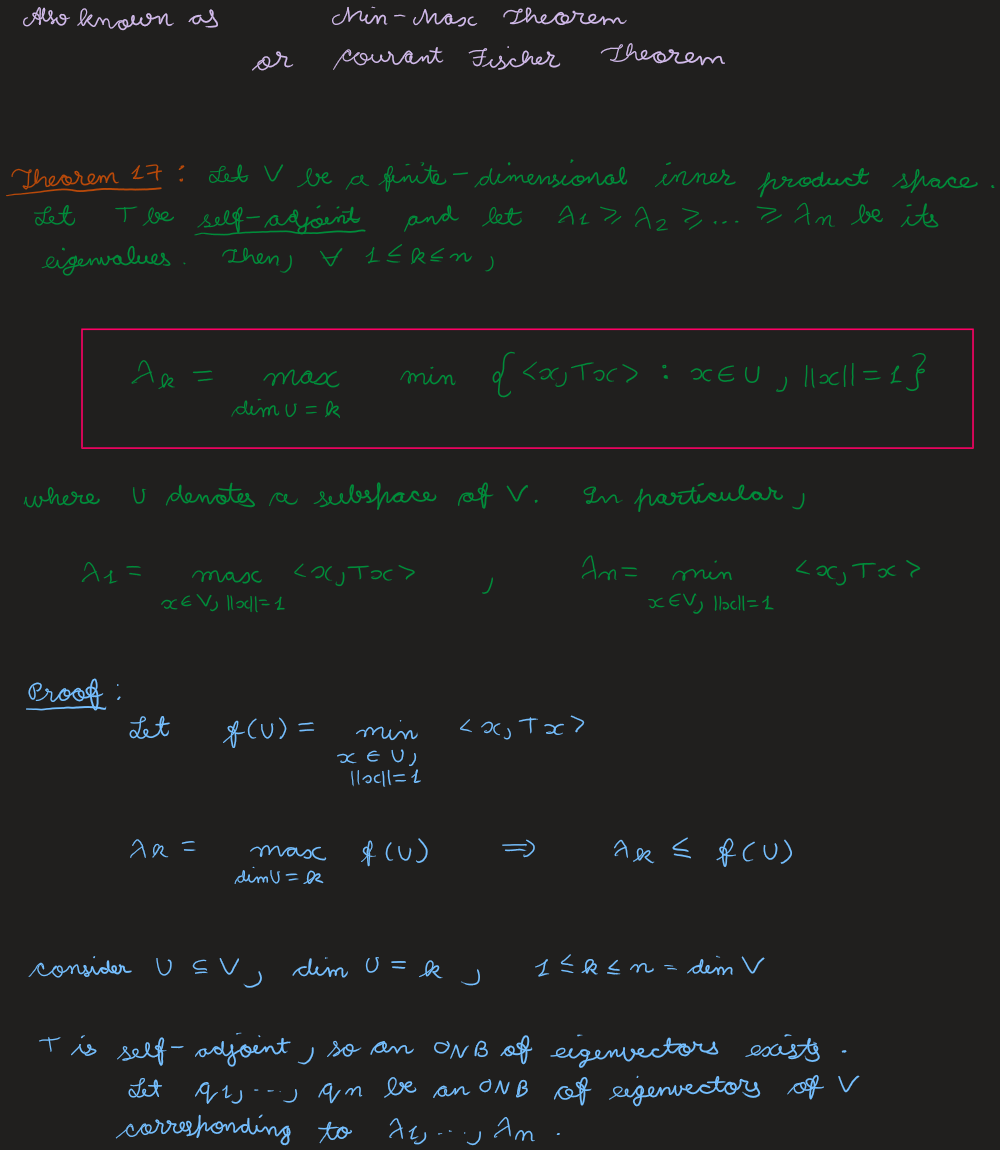 Also known as Min-Max Theorem
or Courant Fischer Theorem
Theorem 17 : Let V be a finite-dimensional inner product space.
Let T be self-adjoint and let λ1 ≥ λ2 ≥ ... ≥ λn be its
eigenvalues. Then, ∀ 1 ≤ k ≤ n,
λk = max min { <x,Tx> : x ∈ U , ||x|| = 1 }
dim U = k
where U denotes a subspace of V. In particular,
λ1 = max <x,Tx> , λn = min <x,Tx>
x ∈ V, ||x|| = 1 x ∈ V, ||x|| = 1
Proof :
Let f(U) = min <x, Tx>
x ∈ U,
||x|| = 1
λk = max f(U) ⟹ λk ≤ f(U)
dim U = k
consider U ⊆ V, dim U = k , 1 ≤ k ≤ n = dim V
T is self-adjoint, so an ONB of eigenvectors exists.
Let q1, ..., qn be an ONB of eigenvectors of V
corresponding to λ1, ..., λn .